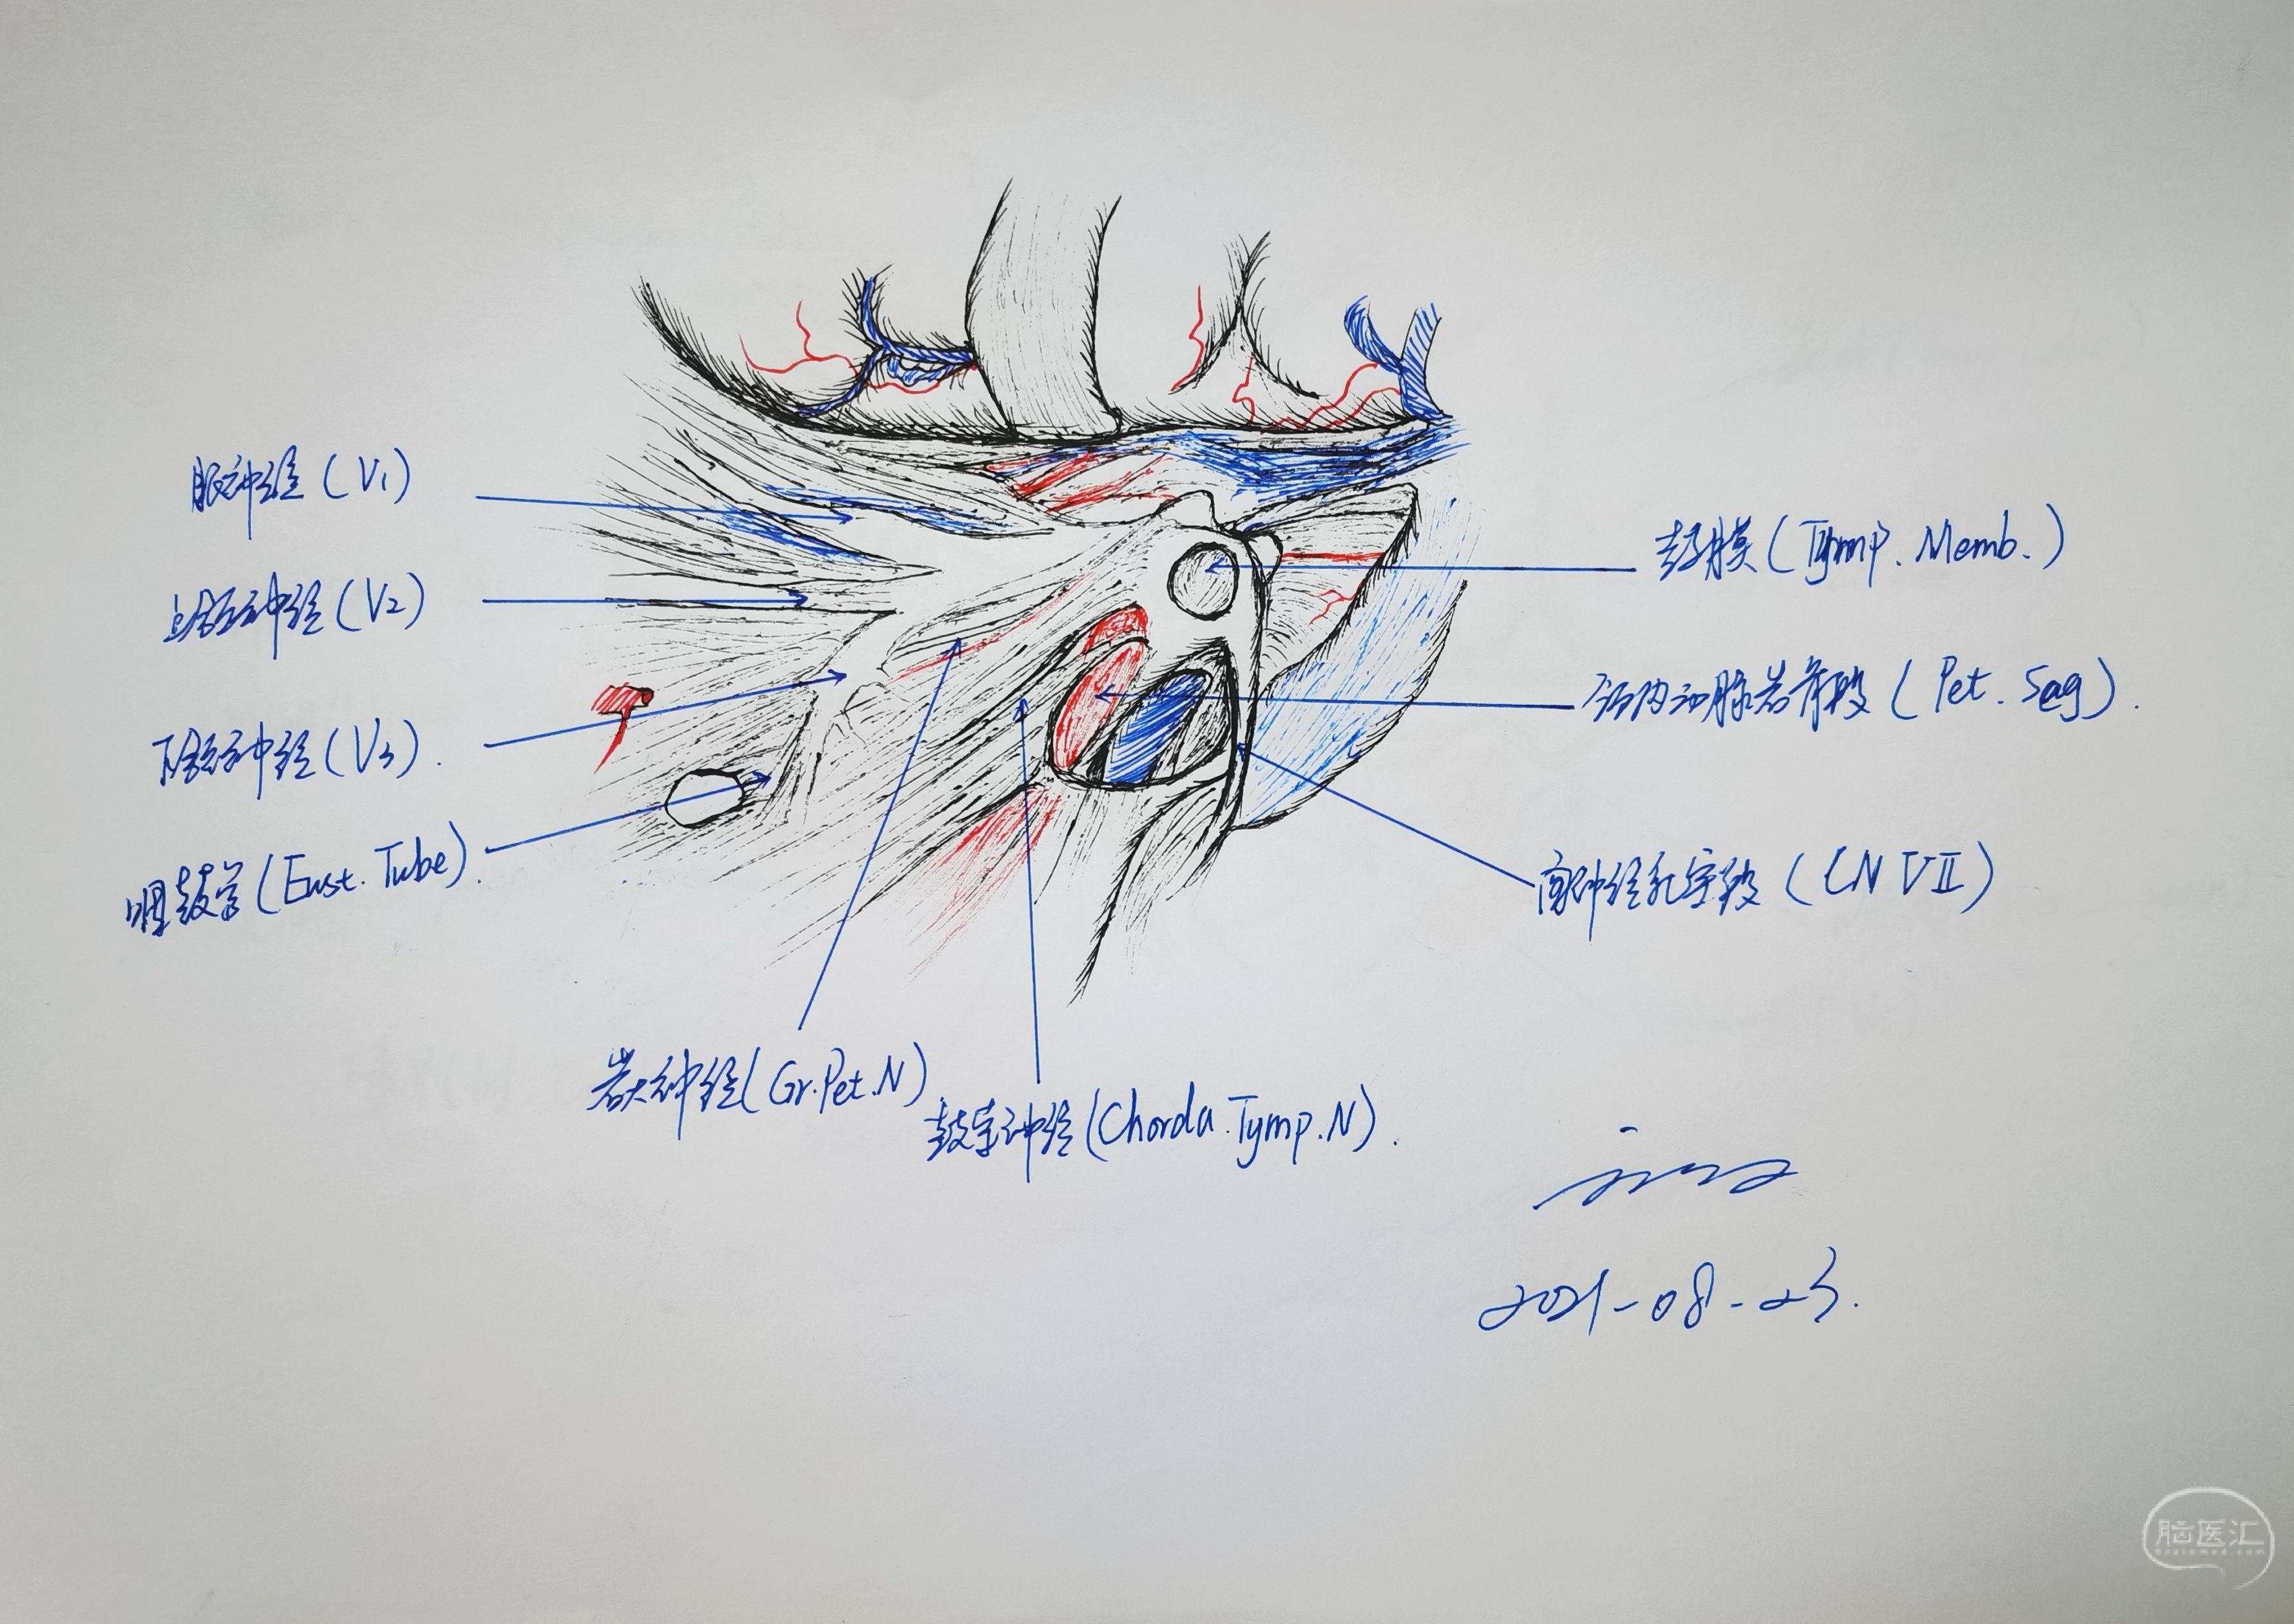 眼神经(V1)
上颌神经(V2)
下颌神经(V3).
咽鼓管(Eust.Tube).
岩大神经(Gr.Pet.N)
鼓索神经(Chorda.Tymp.N).
鼓膜(Tymp.Memb.)
颈内动脉岩骨段(Pet.Seg).
面神经乳突段(CN VII)
2021-08-23.
脑医汇
brainmed.com